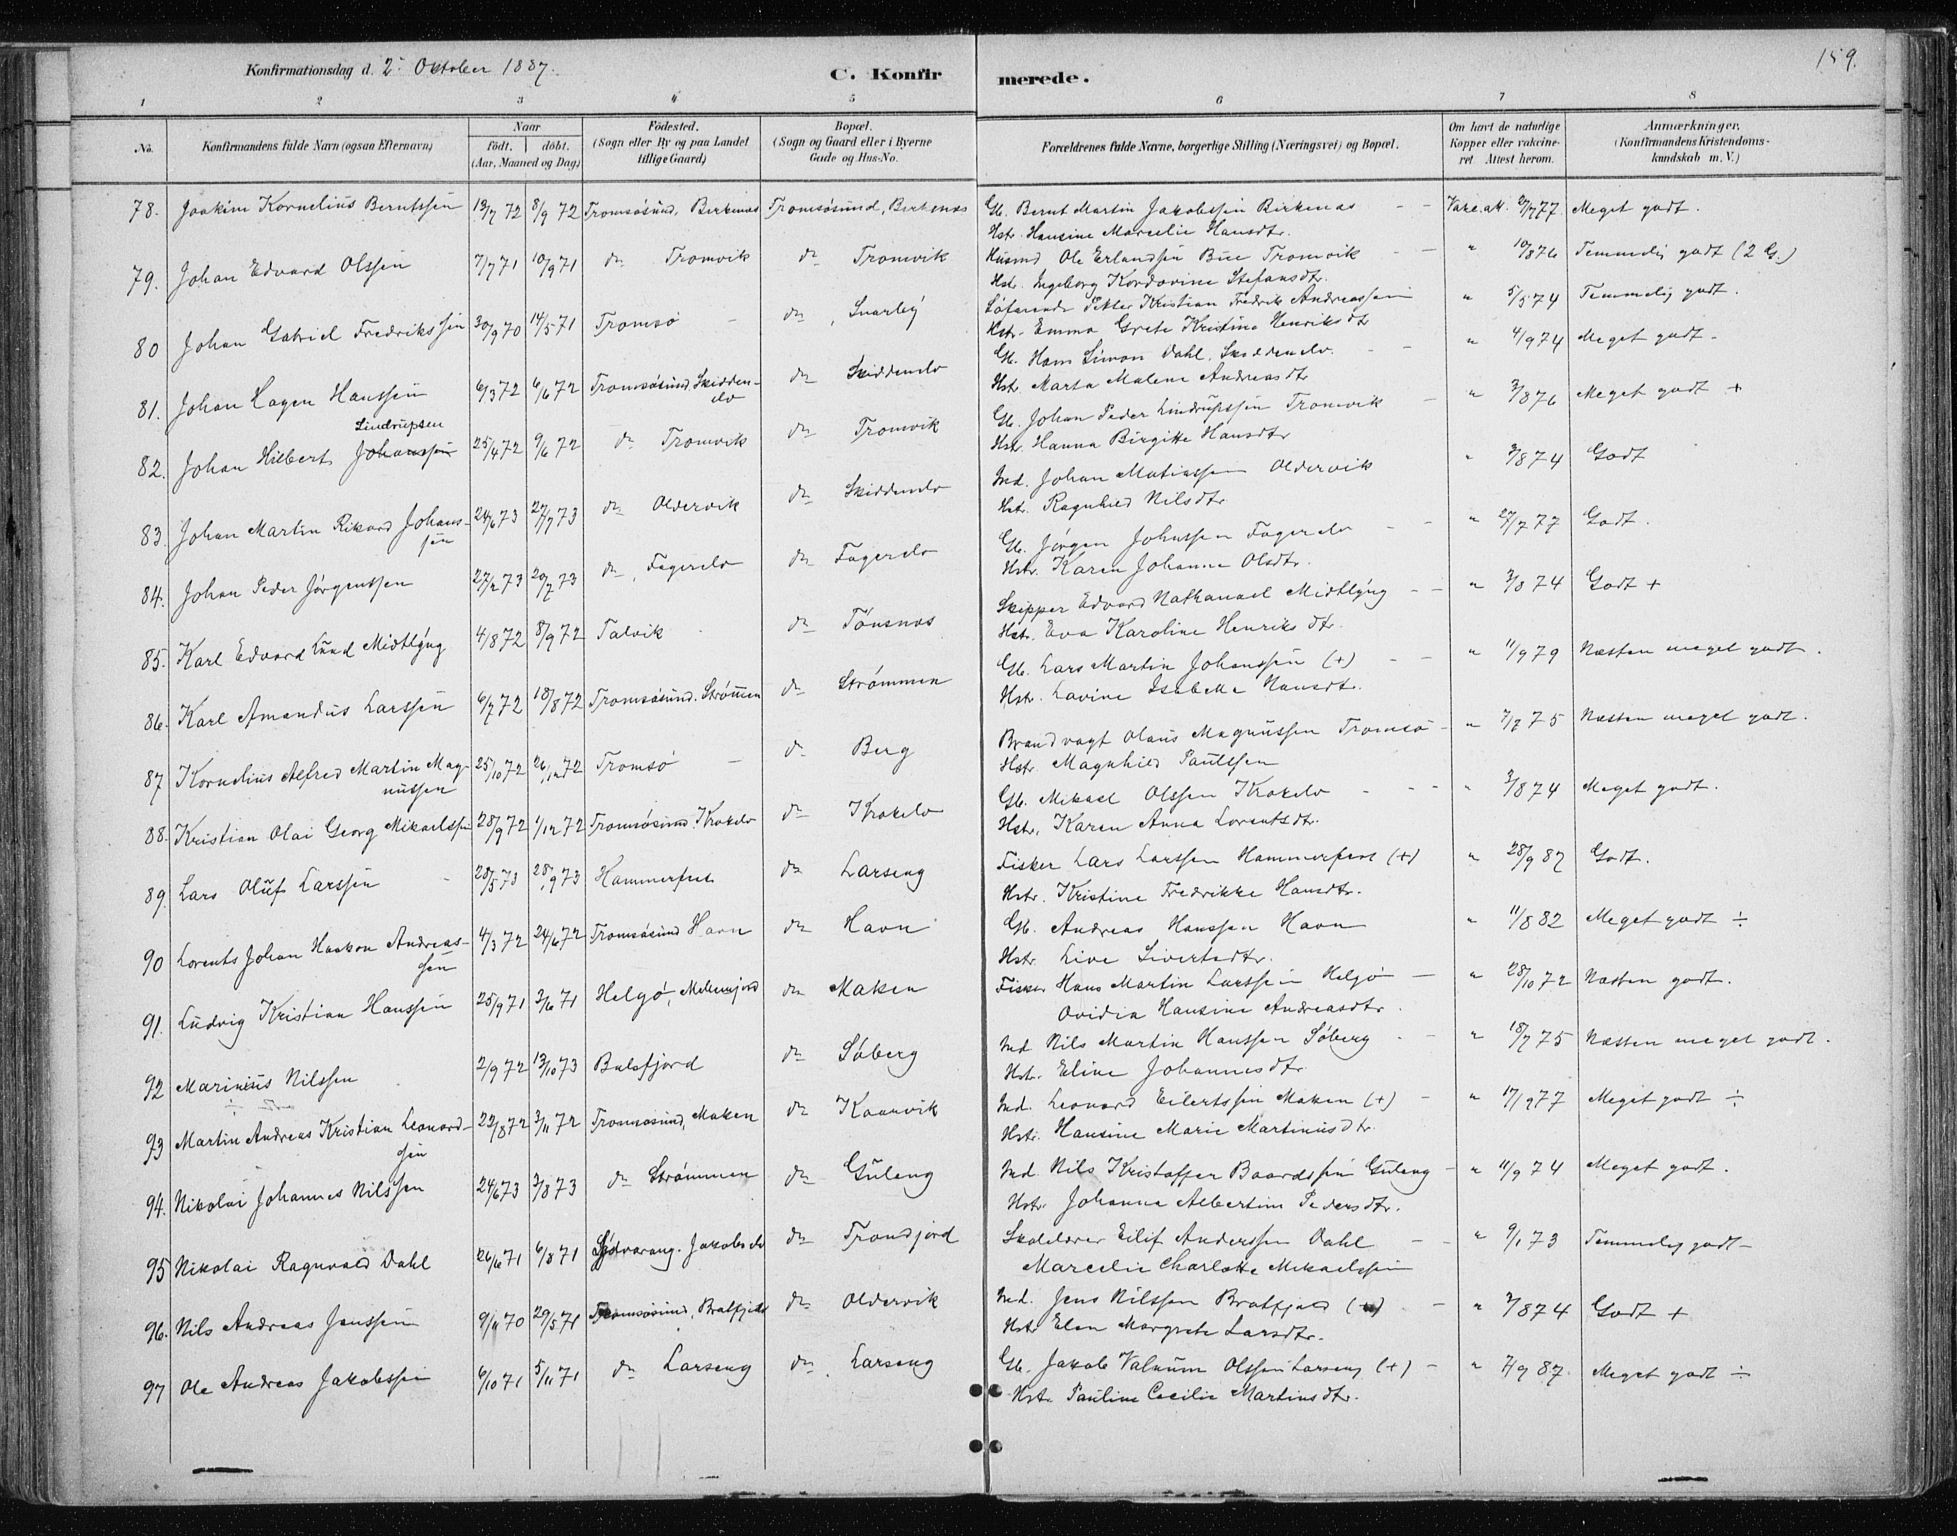 Konfirmationsdag d. 2. Oktober 1887.
C. Konfirmerede.
159.
1 2 3 4 5 6 7 8
No.
Konfirmandens fulde Navn (ogsaa Efternavn)
Naar
födt. döbt.
(Aar, Maaned og Dag)
Födested.
(Sogn eller By og paa Landet
tillige Gaard)
Bopæl.
(Sogn og Gaard eller i Byerne
Gade og Hus-No.
Forældrenes fulde Navne, borgerlige Stilling (Næringsvei) og Bopæl.
Om havt de naturlige
Kopper eller vakcine-
ret Attest herom.
Anmærkninger.
(Konfirmandens Kristendoms-
kundskab m. V.)
78. Joakim Kornelius Berntssen 13/7 72 8/9 72 Tromsøsund, Birkenæs Tromsøsund, Birkenæs Gb. Bernt Martin Jakobssen Birkenæs Vakc.att. 27/7 77 Meget godt.
Hstr. Hansine Marcelie Hansdtr.
79. Johan Edvard Olssen 7/7 71 10/9 71 do Tromvik do Tromvik Husmd Ole Erlandsen Bue Tromvik " 10/8 76 Temmelig godt (2 G.)
Hstr. Ingeborg Kordovine Stefansdtr.
80 Johan Gabriel Fredrikssen 30/9 70 14/5 71 Tromsø do Snarby Søfarende Peter Kristian Fredrik Andreassen " 5/5 74 Temmelig godt.
Hstr. Emma Grete Kristina Henriksdtr
81. Johan Hagen Hanssen 6/3 72 6/6 72 Tromsøsund, Skidden-
elv do Skiddenelv Gb. Hans Simon Dahl, Skiddenelv. " 4/9 74 Meget godt.
Hstr Marta Malene Andreasdtr
Lindrupsen
82. Johan Hilbert Johanssen 25/4 72 9/6 72 do Tromvik do Tromvik Gb. Johan Peder Lindrupssen Tromvik " 3/8 76 Meget godt +
Hstr. Hanna Birgitte Hansdtr
83. Johan Martin Rikard Johans-
sen 24/6 73 27/7 73 do Oldervik do Skiddenelv Ind. Johan Matiassen Oldervik " 3/8 74 Godt
Hstr. Ragnhild Nilsdtr.
84. Johan Peder Jørgenssen 27/2 73 20/7 73 do, Fagerelv do Fagerelv Gb. Jørgen Johnssen Fagerelv " 27/7 77 Godt.
Hstr. Karen Johanne Olsdtr.
85. Karl Edvard Lund Midtlyng 4/8 72 8/9 72 Talvik do Tønsnes Skipper Edvard Nathanael Midtlyng " 3/8 74 Godt +
Hstr. Eva Karoline Henriksdtr.
86. Karl Amandus Larssen 6/7 72 18/8 72 Tromsøsund. Strømmen do Strømmen Gb. Lars Martin Johanssen (+) " 11/9 79 Næsten meget godt.
Hstr. Lavine Isabella Hansdtr.
87 Kornelius Alfred Martin Mag-
nussen 25/10 72 26/12 72 Tromsø do Berg Brandvagt Olaus Magnussen Tromsø " 7/7 75 Næsten meget godt.
Hstr. Magnhild Paulsen
88. Kristian Olai Georg Mikaelssen 28/9 72 1/12 72 Tromsøsund. Krokelv do Krokelv Gb. Mikael Olssen Krokelv " 3/8 74 Meget godt.
Hstr. Karen Anna Lorentsdtr.
89. Lars Oluf Larssen 28/5 73 28/9 73 Hammerfest do Larseng Fisker Lars Larssen Hammerfest (+) " 28/9 87 Godt.
Hstr. Kristine Fredrikke Hansdtr.
90 Lorents Johan Haakon Andreas-
sen 4/3 72 24/6 72 Tromsøsund Havn do Havn Gb. Andreas Hanssen Havn " 11/8 82 Meget godt ÷
Hstr. Live Sivertsdtr.
91. Ludvig Kristian Hanssen 25/9 71 3/6 71 Helgø, do Maken Fisker Hans Martin Larssen Helgø " 28/10 72 Næsten godt.
Ovidia Hansine Andreasdtr.
92 Marinius Nilssen 2/9 72 13/10 73 Balsfjord do Søberg Ind Nils Martin Hanssen Søberg " 18/7 75 Næsten meget godt.
Hstr. Eline Johannesdtr
93 Martin Andreas Kristian Leonard-
sen 22/8 72 3/11 72 Tromsøsund, Maken do Kaarvik Ind. Leonard Eilertssen Maken (+) " 17/9 77 Meget godt ÷
Hstr. Hansine Marie Martinusdtr.
94. Nikolai Johannes Nilssen 24/6 73 3/8 73 do Strømmen do Guleng Ind. Nils Kristoffer Baardssen Guleng " 11/9 74 Meget godt.
Hstr. Johanna Albertine Pedersdtr.
95 Nikolai Ragnvald Dahl 26/6 71 6/8 71 Sydvarang. Jakobselv do Trondjord Skolelærer Eilif Anderssen Dahl " 9/1 73 Temmelig godt
Marcelie Charlotte Mikaelssen
96. Nils Andreas Jenssen 9/11 70 29/5 71 Tromsøsund, Bratfjeld do Oldervik Ind. Jens Nilssen Bratfjeld (+) " 3/8 74 Godt +
Hstr Elen Margrete Larsdtr.
97 Ole Andreas Jakobssen 6/10 71 5/11 71 do Larseng do Larseng Gb. Jakob Valnum Olssen Larseng (+) " 7/9 87. Meget godt ÷
Hstr. Pauline Cecilie Martinsdtr.